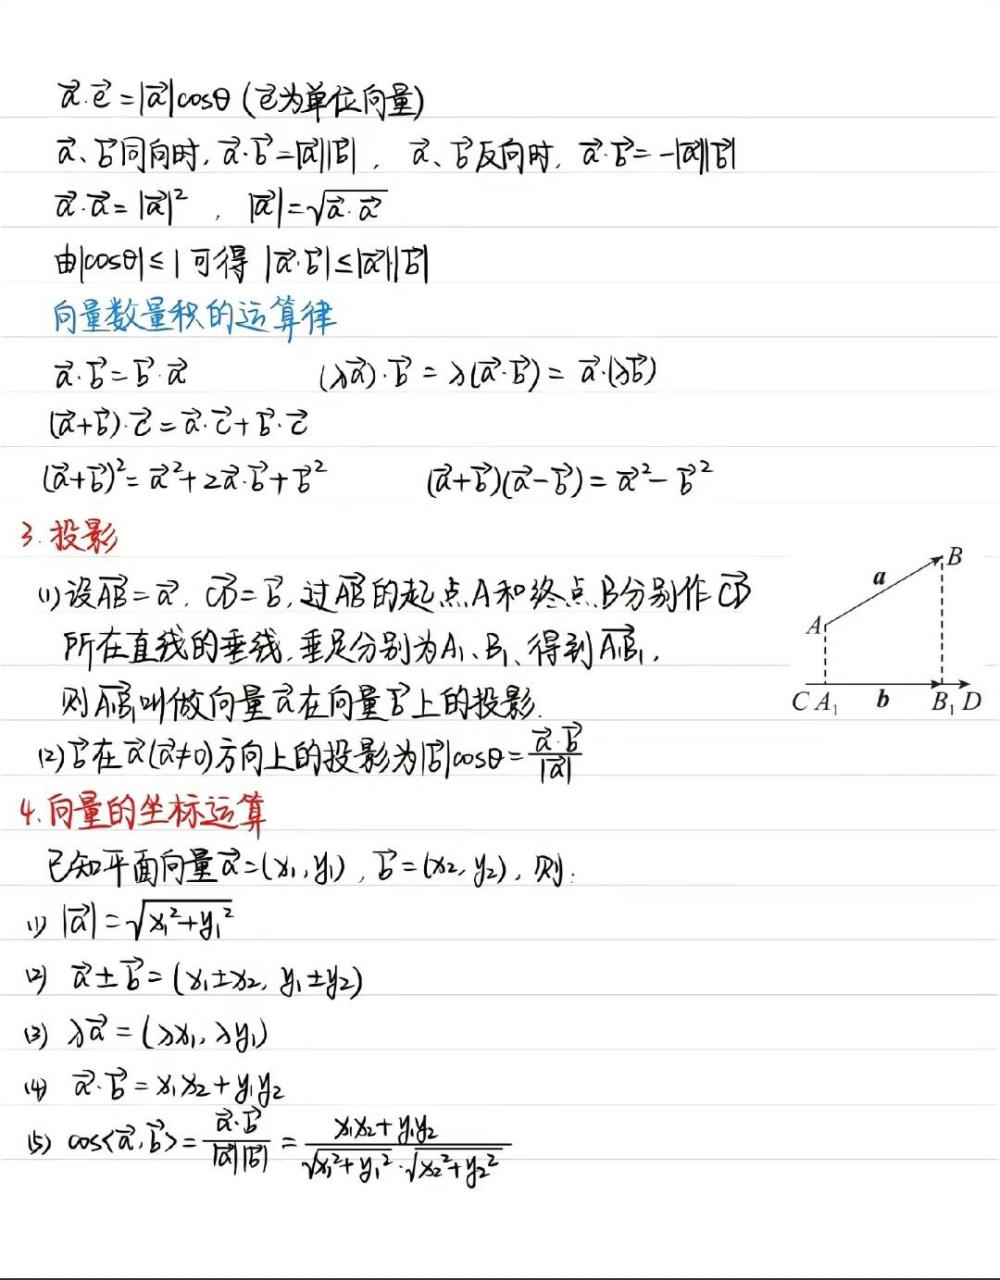 a⃗·e⃗=|a⃗|cosθ (e⃗为单位向量)
a⃗、b⃗同向时, a⃗·b⃗=|a⃗||b⃗|, a⃗、b⃗反向时, a⃗·b⃗=-|a⃗||b⃗|
a⃗·a⃗=|a⃗|², |a⃗|=√(a⃗·a⃗)
由|cosθ|≤1可得 |a⃗·b⃗|≤|a⃗||b⃗|
向量数量积的运算律
a⃗·b⃗=b⃗·a⃗ (λa⃗)·b⃗=λ(a⃗·b⃗)=a⃗·(λb⃗)
(a⃗+b⃗)·c⃗=a⃗·c⃗+b⃗·c⃗
(a⃗+b⃗)²=a⃗²+2a⃗·b⃗+b⃗² (a⃗+b⃗)(a⃗-b⃗)=a⃗²-b⃗²
3.投影
(1)设AB⃗=a⃗, CD⃗=b⃗,过AB⃗的起点A和终点B分别作CD⃗
所在直线的垂线,垂足分别为A₁、B₁、得到A₁B₁⃗,
则A₁B₁⃗叫做向量a⃗在向量b⃗上的投影.
B
a
A
C A₁ b B₁ D
(2)b⃗在a⃗(a⃗≠0)方向上的投影为|b⃗|cosθ=(a⃗·b⃗)/|a⃗|
4.向量的坐标运算
已知平面向量a⃗=(x₁,y₁), b⃗=(x₂,y₂), 则:
(1) |a⃗|=√(x₁²+y₁²)
(2) a⃗±b⃗=(x₁±x₂, y₁±y₂)
(3) λa⃗=(λx₁, λy₁)
(4) a⃗·b⃗=x₁x₂+y₁y₂
(5) cos<a⃗,b⃗>=(a⃗·b⃗)/(|a⃗||b⃗|)=(x₁x₂+y₁y₂)/(√(x₁²+y₁²)·√(x₂²+y₂²))